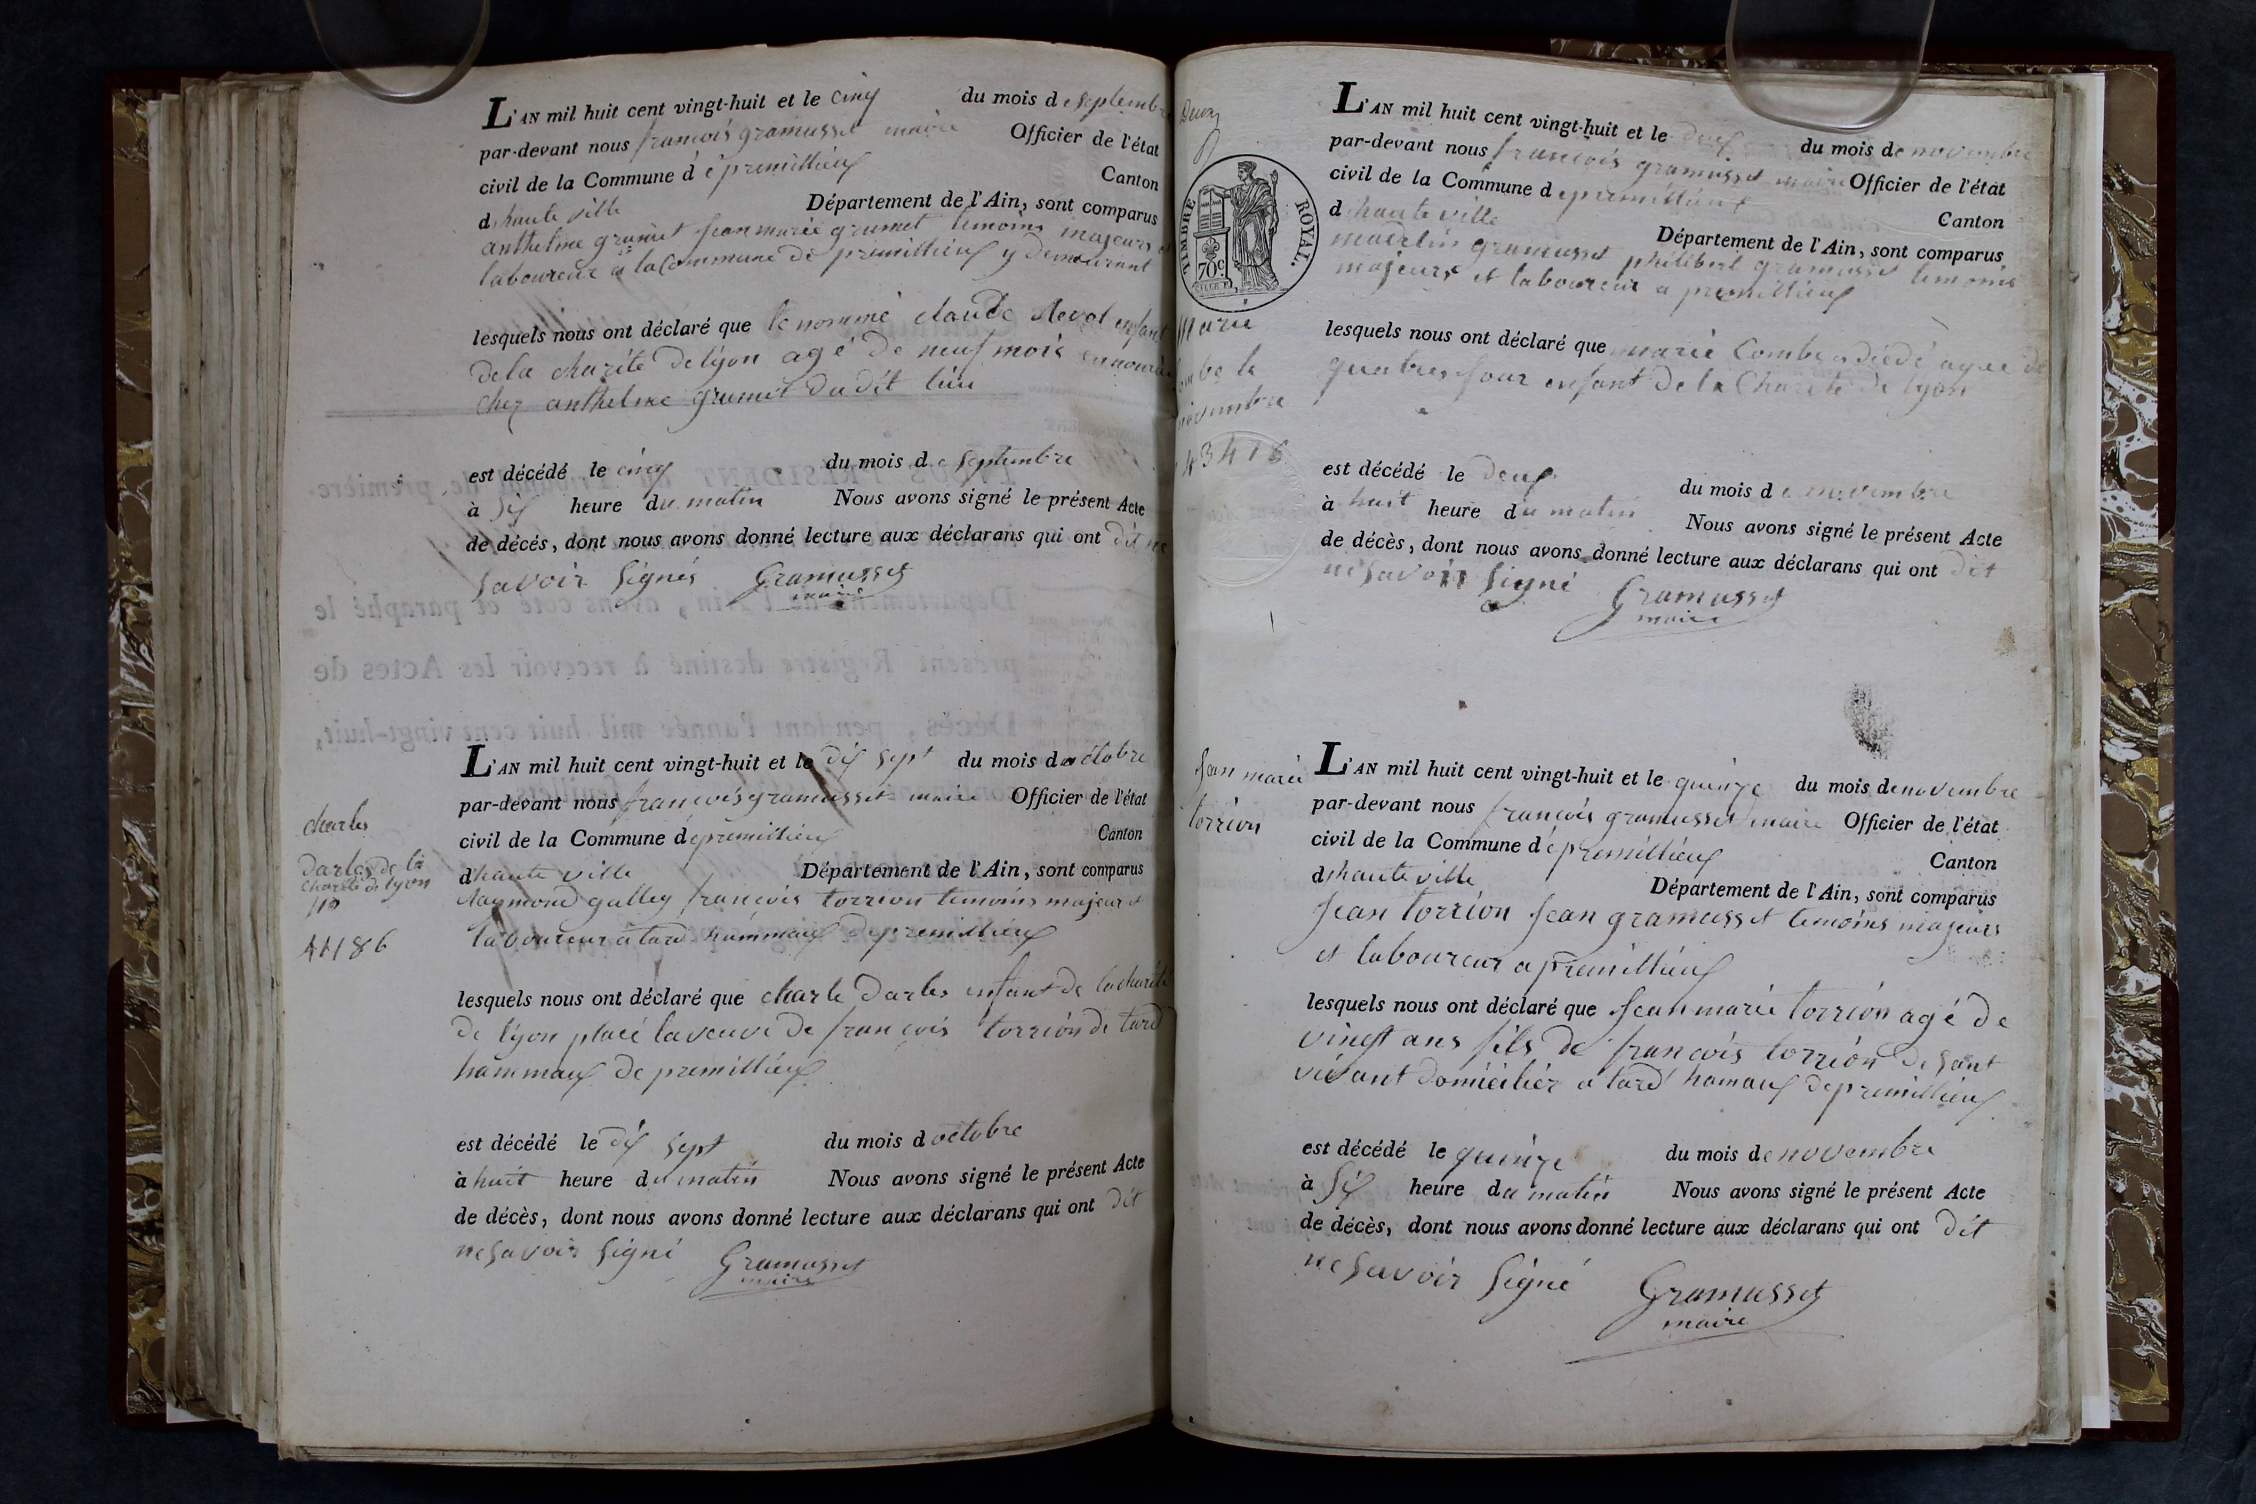 L'AN mil huit cent vingt-huit et le cinq du mois de septembre
par-devant nous francois gramusset maire Officier de l'état
civil de la Commune d é premillieux Canton
d haute ville Département de l'Ain, sont comparus
anthelme grumet jean marie grumet temoins majeurs et
laboureur a la Commune de premillieux y demeurant
lesquels nous ont déclaré que le nommé claude enfant
de la charité de lyon agé de neuf mois en
chez anthelme grumet du dit lieu
est décédé le cinq du mois de septembre
à six heure du matin Nous avons signé le présent Acte
de décés, dont nous avons donné lecture aux déclarans qui ont dit ne
savoir signés Gramusset
maire
L'AN mil huit cent vingt-huit et le dix sept du mois d octobre
par-devant nous francois gramusset maire Officier de l'état
civil de la Commune d é premillieux Canton
d haute ville Département de l'Ain, sont comparus
Raymond gulley francois torrion temoins majeur et
laboureur a tard hammaux de premillieux
charles
darles de la
charité de lyon
lesquels nous ont déclaré que charle darles enfant de la charité
de lyon placé la veuve de francois torrion de tard
hammaux de premillieux
est décédé le dix sept du mois d octobre
à huit heure du matin Nous avons signé le présent Acte
de décès, dont nous avons donné lecture aux déclarans qui ont dit
ne savoir signé Gramusset
maire
TIMBRE ROYAL.
70c
L'AN mil huit cent vingt-huit et le deux du mois de novembre
par-devant nous francois gramusset maire Officier de l'état
civil de la Commune d epremillieux Canton
d haute ville Département de l'Ain, sont comparus
gramusset philibert gramusset temoins
majeurs et laboureur a premillieux
Marie
combe le
novembre
43416
lesquels nous ont déclaré que marie Combe décédé agée de
quatres jour enfant de la Charité de lyon
est décédé le deux du mois de novembre
à huit heure du matin Nous avons signé le présent Acte
de décès, dont nous avons donné lecture aux déclarans qui ont dit
ne savoir signé Gramusset
maire
jean marie
torrion
L'AN mil huit cent vingt-huit et le quinze du mois de novembre
par-devant nous francois gramusset maire Officier de l'état
civil de la Commune d é premillieux Canton
d haute ville Département de l'Ain, sont comparus
jean torrion jean gramusset temoins majeurs
et laboureur a premillieux
lesquels nous ont déclaré que jean marie torrion agé de
vingt ans fils de francois torrion de sont
vivant domicilier a tard hamaux de premillieux
est décédé le quinze du mois de novembre
à six heure du matin Nous avons signé le présent Acte
de décès, dont nous avons donné lecture aux déclarans qui ont dit
ne savoir signé Gramusset
maire